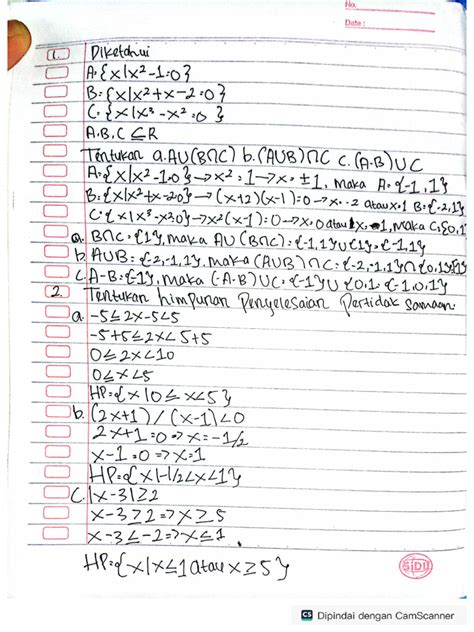 No.
Date :
1. Diketahui
A = {x|x²-1=0}
B = {x|x²+x-2=0}
C = {x|x³-x²=0}
A, B, C ⊆ R
Tentukan a. A∪(B∩C) b. (A∪B)∩C C. (A-B)∪C
A = {x|x²-1=0} → x² = 1 → x = ±1, maka A = {-1, 1}
B = {x|x²+x-2=0} → (x+2)(x-1)=0 → x = -2 atau x=1 B = {-2,1}
C = {x|x³-x²=0} → x²(x-1)=0 → x=0 atau x=1, maka C = {0,1
a. B∩C = {1}, maka A∪(B∩C) = {-1,1}∪{1} = {-1,1}
b. A∪B = {-2,-1,1}, maka (A∪B)∩C = {-2,-1,1}∩{0,1}
C. A-B = {-1}, maka (A-B)∪C = {-1}∪{0,1 {-1,0,1}
2. Tentukan himpunan Penyelesaian Pertidak samaan.
a. -5≤2x-5<5
-5+5≤2x<5+5
0≤2x<10
0≤x<5
HP={x|0≤x<5}
b. (2x+1)/(x-1)<0
2x+1=0 => x=-1/2
x-1=0 => x=1
HP={x|-1/2<x<1}
C. |x-3|≥2
x-3≥2 => x≥5
x-3≤-2 => x≤1
HP={x|x≤1 atau x≥5}
SIDU
CS Dipindai dengan CamScanner